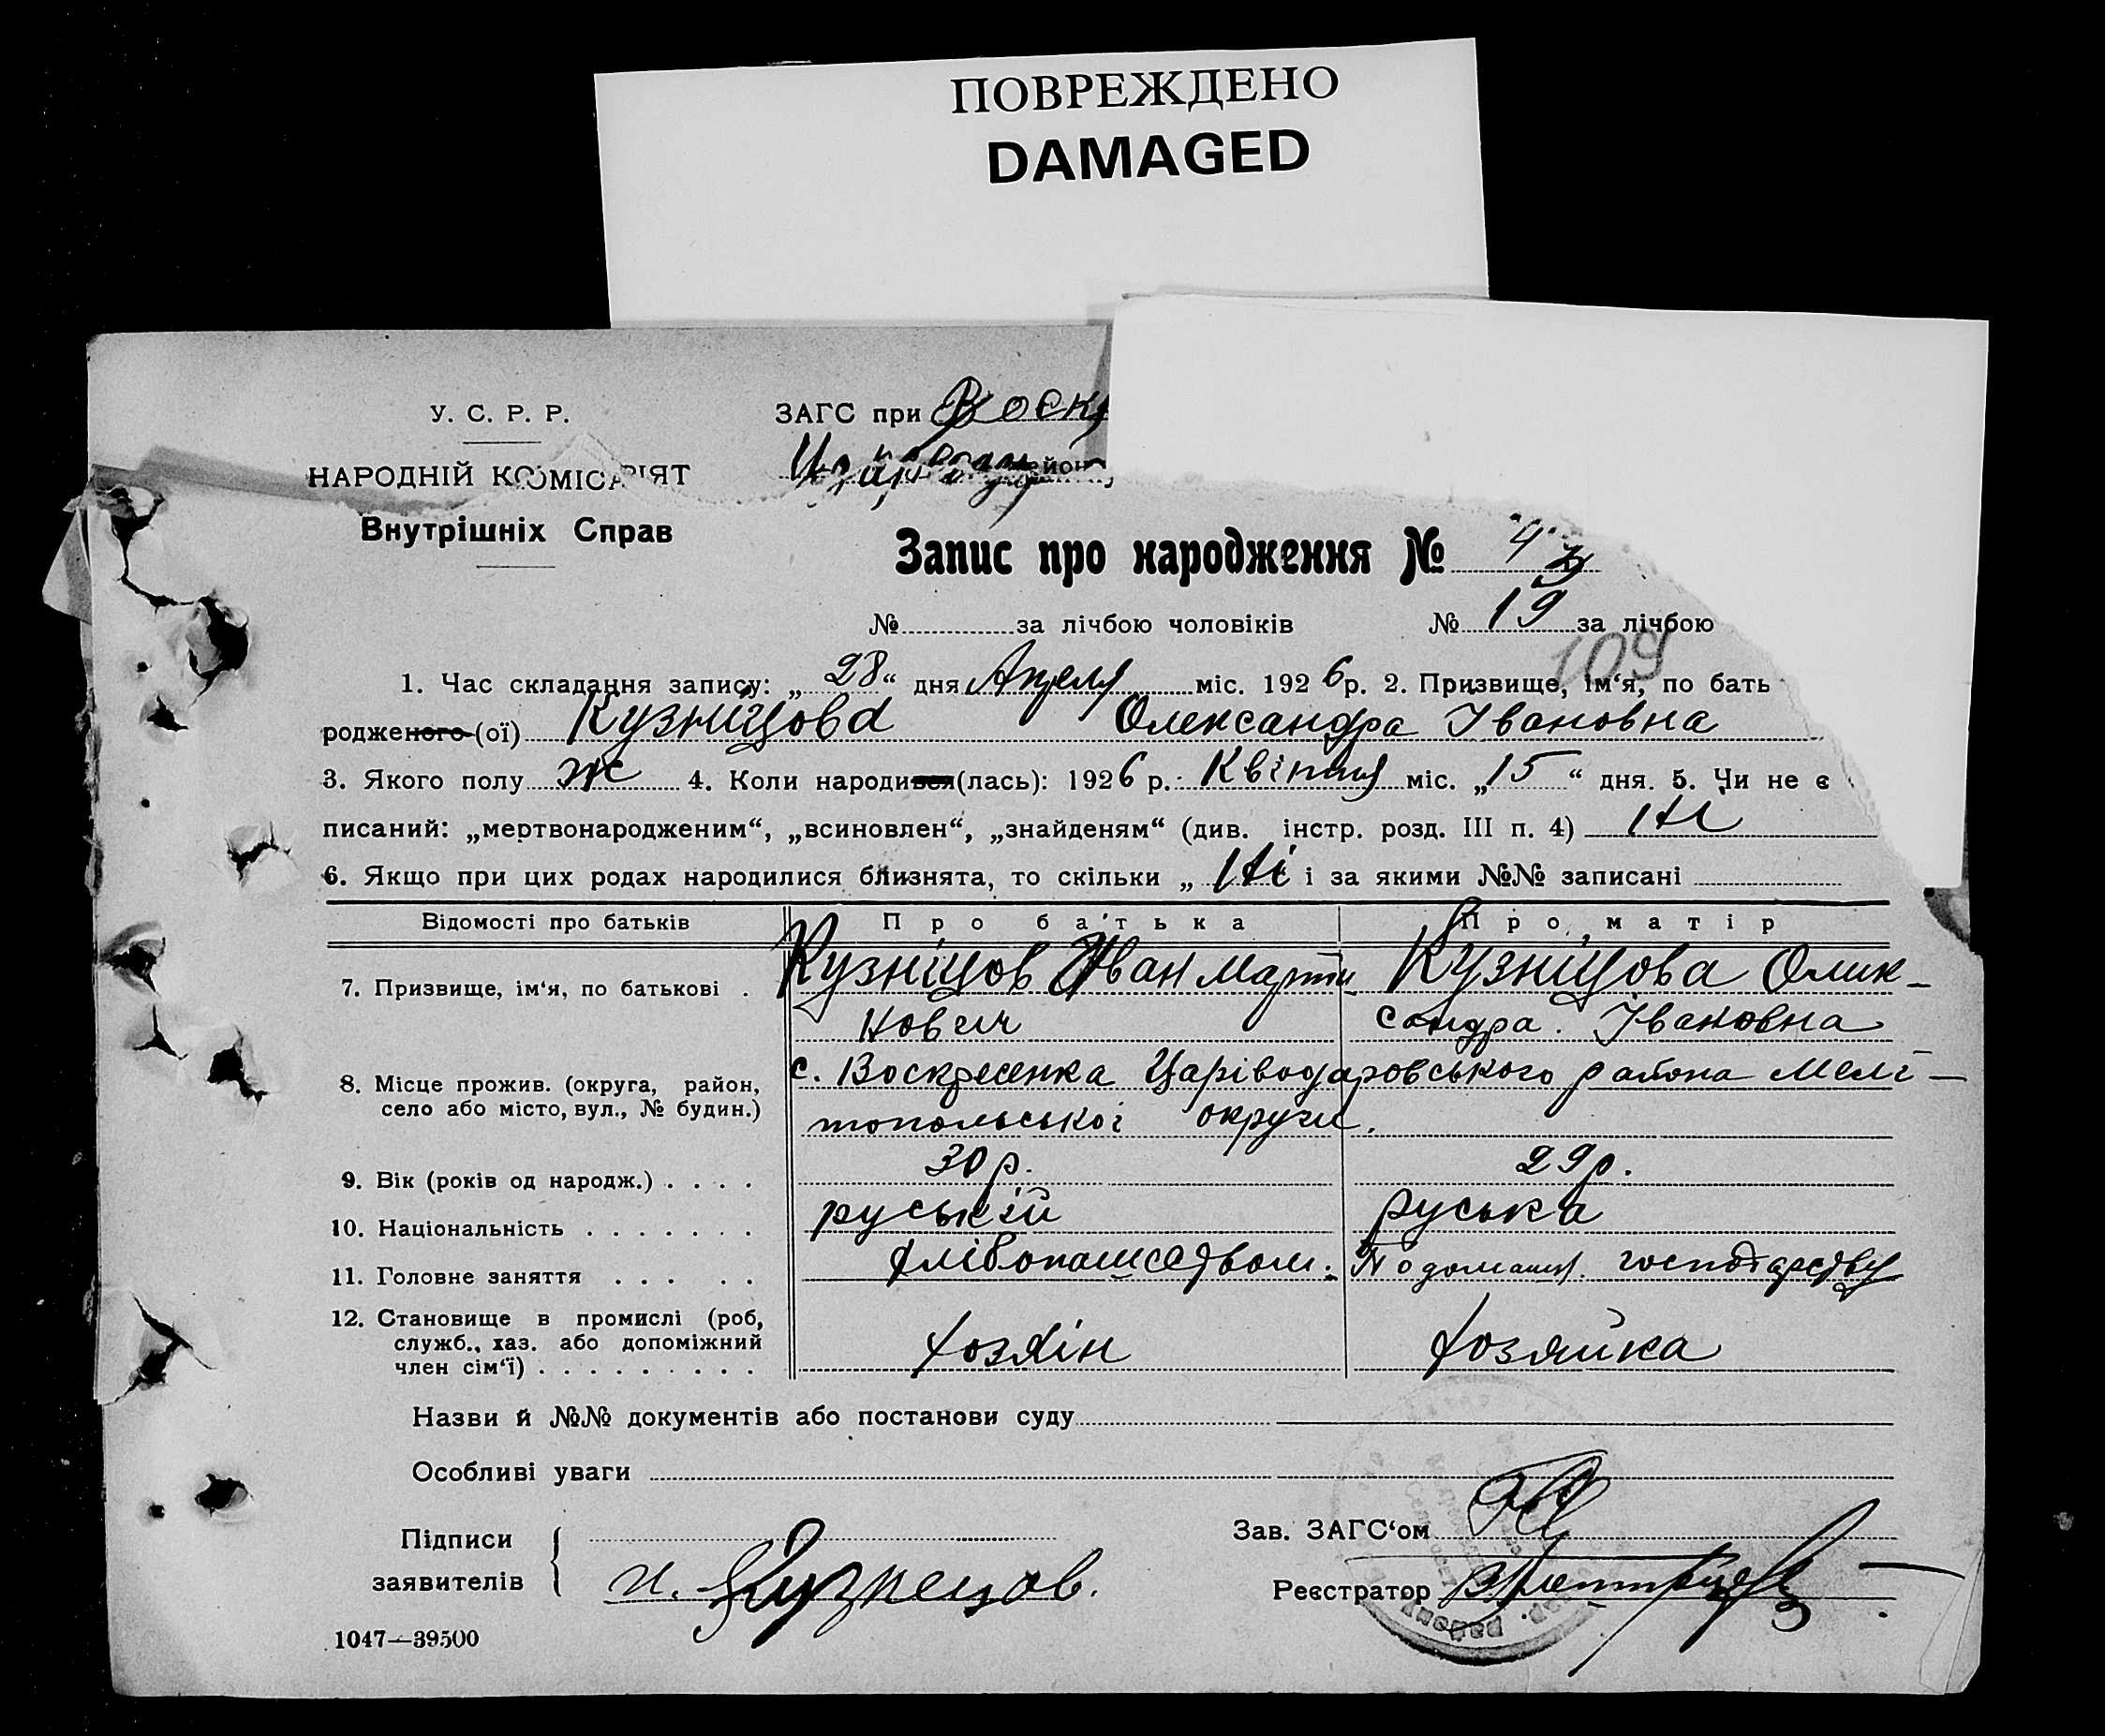 ПОВРЕЖДЕНО
DAMAGED
У. С. Р. Р.
ЗАГС при Воск
НАРОДНІЙ КОМІСАРІЯТ
Внутрішніх Справ
Запис про народження №
№ за лічбою чоловіків № 19 за лічбою
109
1. Час складання запису: „28“ дня Апреля міс. 1926 р. 2. Призвище, ім‘я, по бать
родженого (ої) Кузніцова Олександра Івановна
3. Якого полу ж 4. Коли народився (лась): 1926 р. Квітня міс. „15“ дня. 5. Чи не є
писаний: „мертвонародженим“, „всиновлен“, „знайденям“ (див. інстр. розд. III п. 4) Ні
6. Якщо при цих родах народилися близнята, то скільки „ Ні і за якими №№ записані
Відомості про батьків Про батька Про матір
7. Призвище, ім‘я, по батькові . Кузніцов Іван Марти Кузніцова Олик-
нович сандра. Івановна
8. Місце прожив. (округа, район, с. Воскресенка Царіводаровського района Мелі-
село або місто, вул., № будин.) топольської округи.
9. Вік (років од народж.) . . . . 30 р. 29 р.
10. Національність . . . . . . . руський руська
11. Головне заняття . . . . . хлібопашедвом. По домашн. господарству
12. Становище в промислі (роб,
служб., хаз. або допоміжний хозяїн хозяйка
член сім‘ї) . . . . . . . . .
Назви й №№ документів або постанови суду
Особливі уваги
Підписи Зав. ЗАГС‘ом
заявителів и. Кузнецов. Реєстратор
1047—39500